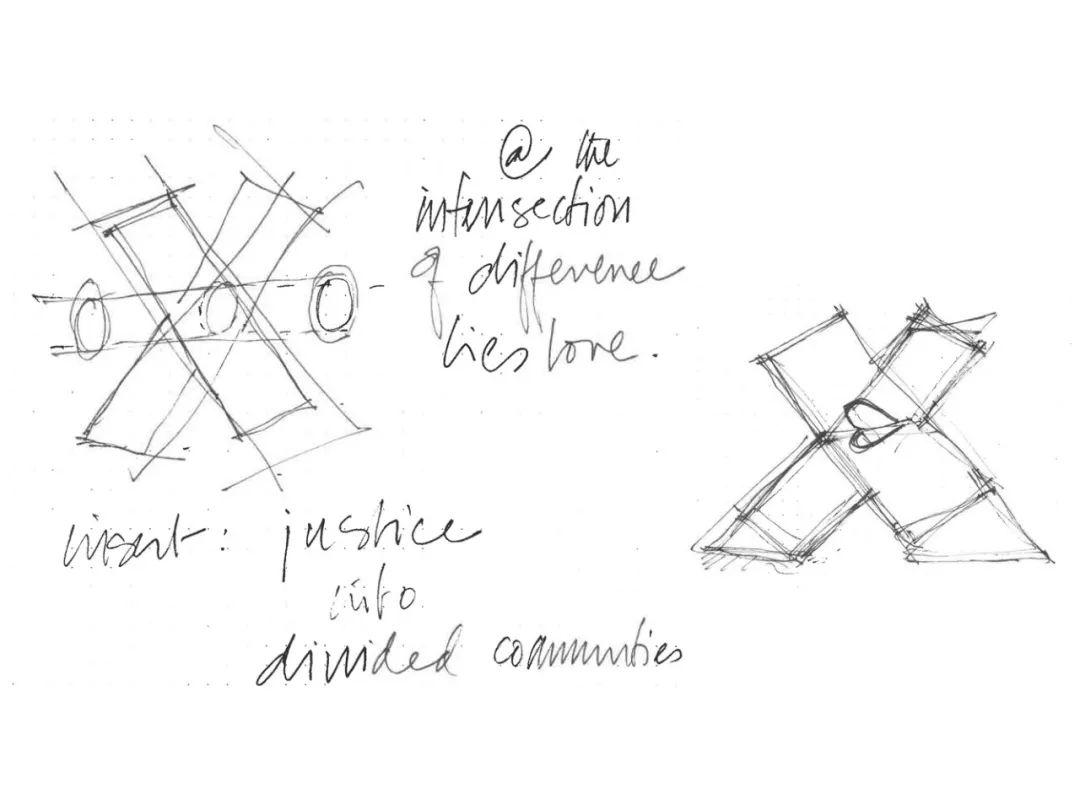 @ the
intersection
of difference
lies love.
insert: justice
into
divided communities